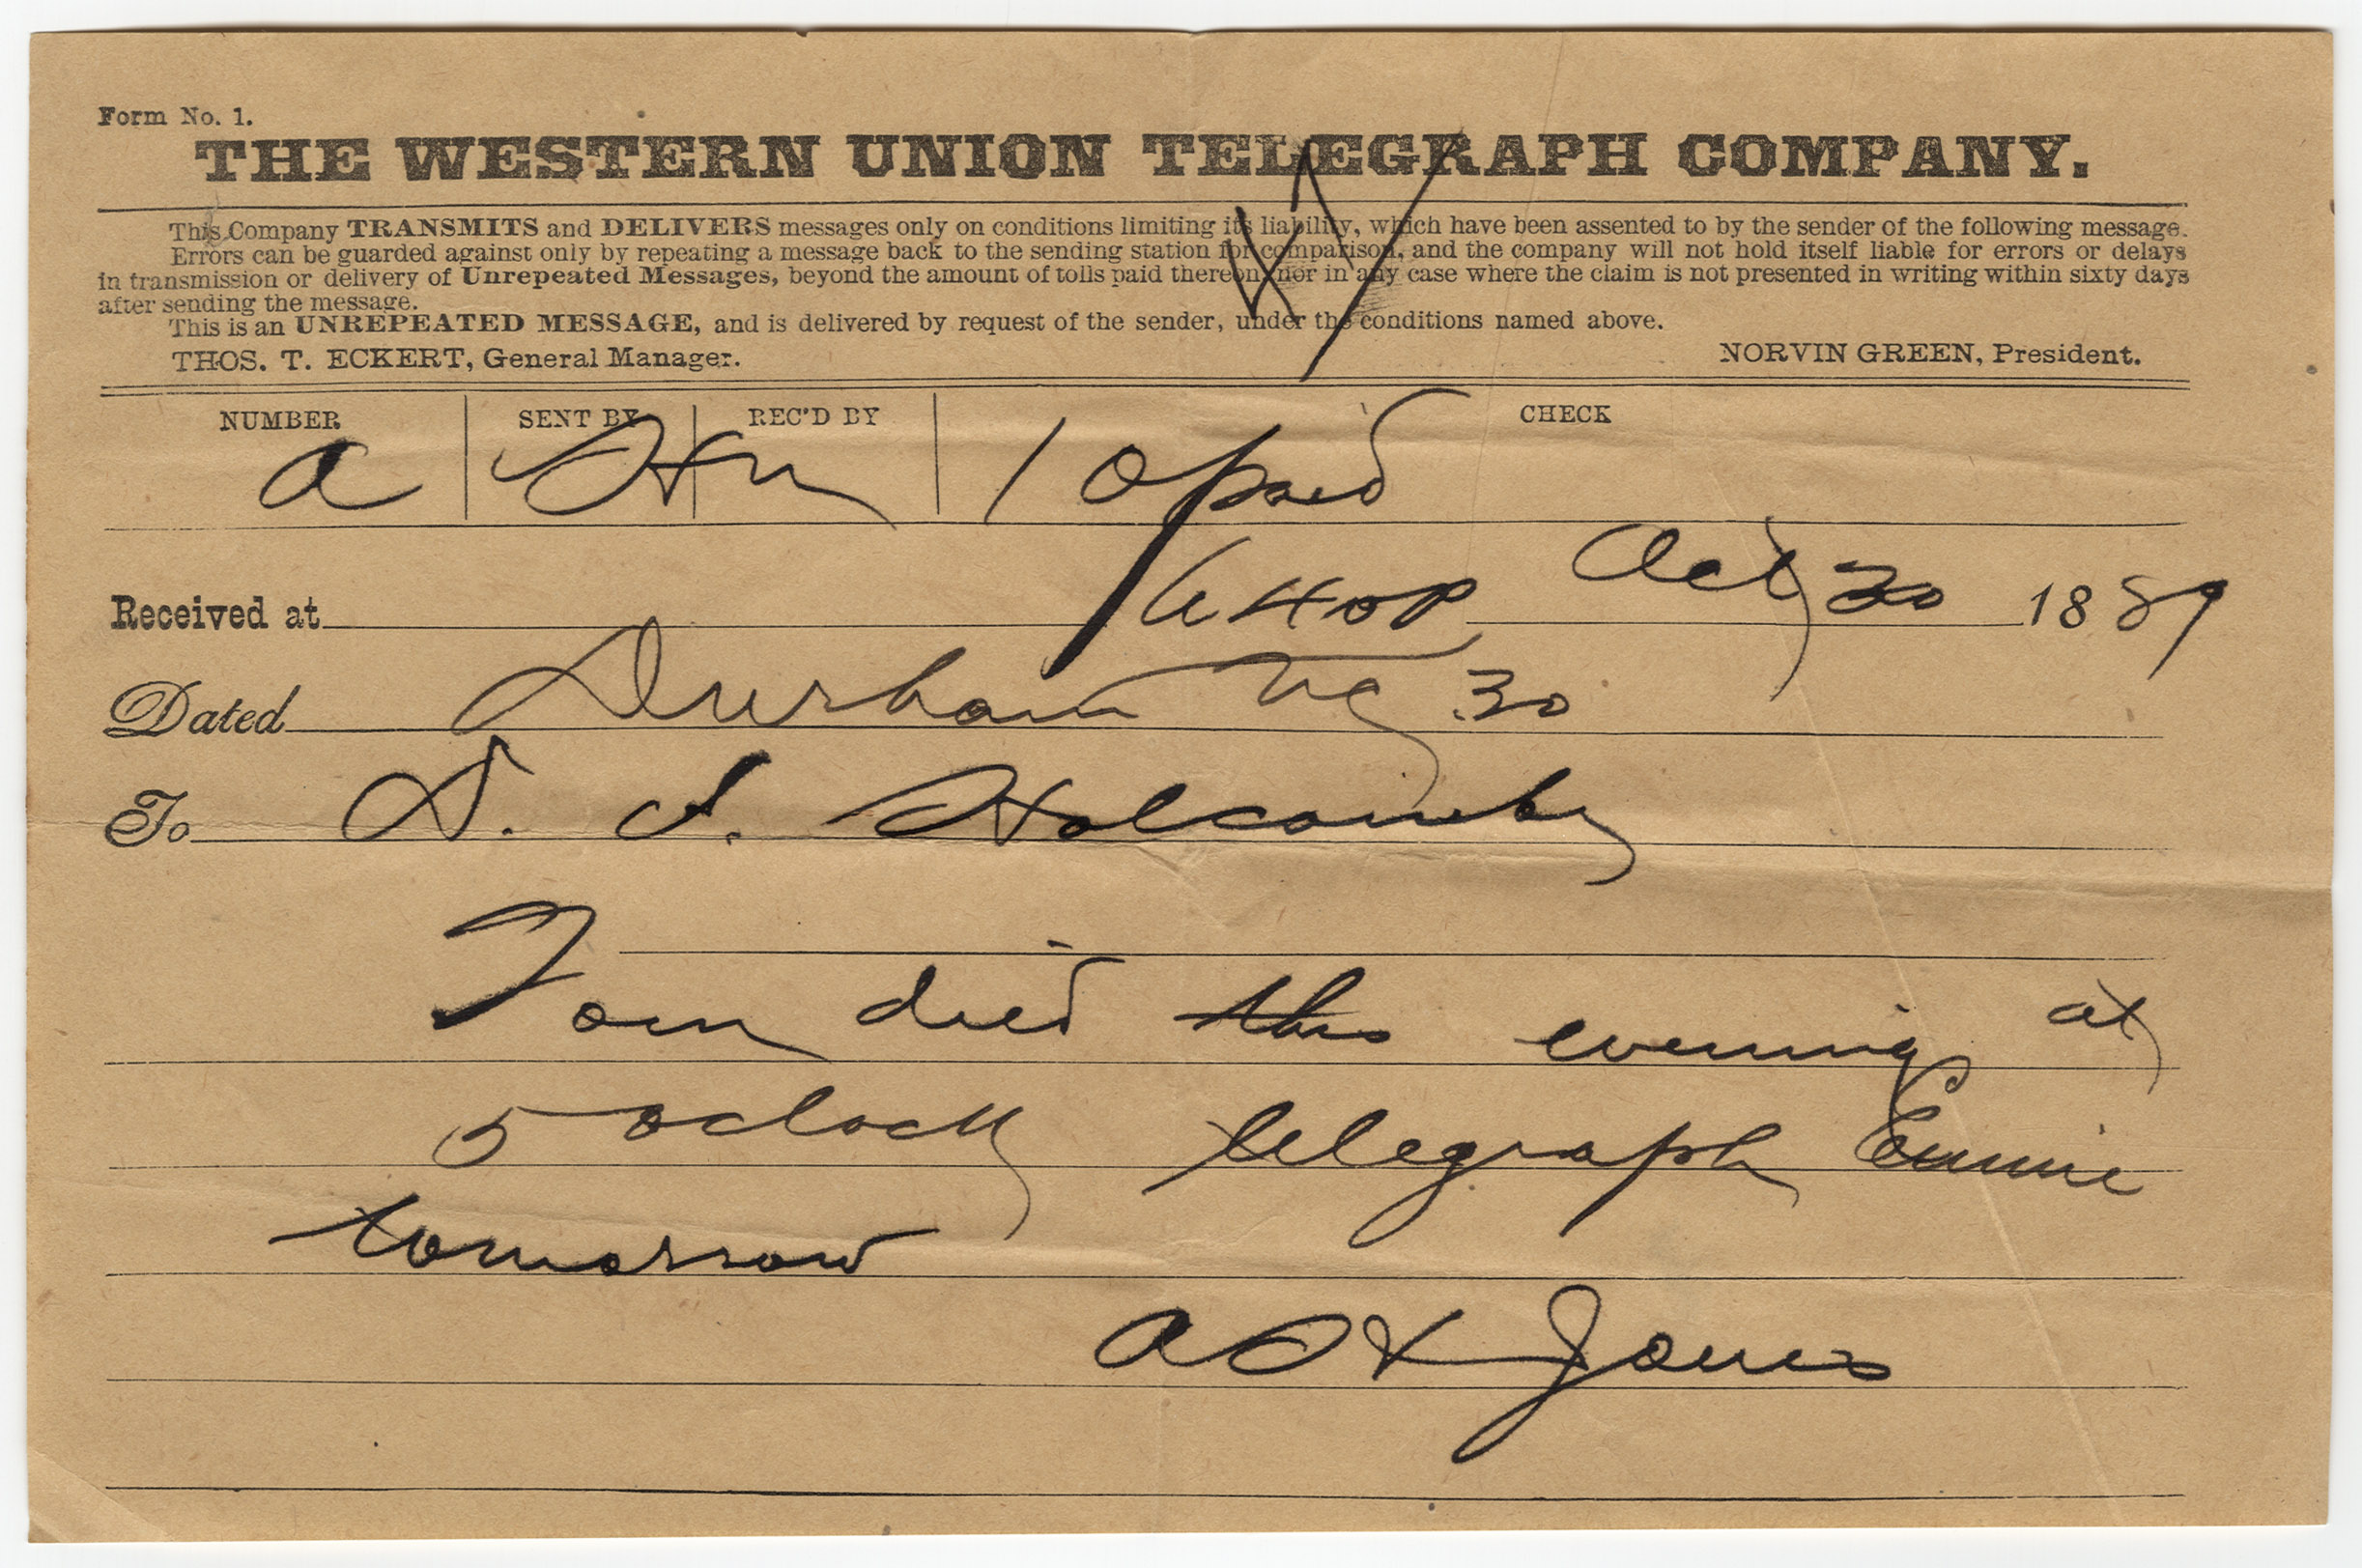 Form No. 1.
THE WESTERN UNION TELEGRAPH COMPANY.
This Company TRANSMITS and DELIVERS messages only on conditions limiting its liability, which have been assented to by the sender of the following message.
Errors can be guarded against only by repeating a message back to the sending station for comparison, and the company will not hold itself liable for errors or delays
in transmission or delivery of Unrepeated Messages, beyond the amount of tolls paid thereon, nor in any case where the claim is not presented in writing within sixty days
after sending the message.
This is an UNREPEATED MESSAGE, and is delivered by request of the sender, under the conditions named above.
THOS. T. ECKERT, General Manager. NORVIN GREEN, President.
NUMBER SENT BY REC'D BY CHECK
a 10 paid
Received at Oct 30 1889
Dated Durham NC 30
To S. S. Holcomb
Tom died this evening at
5 oclock telegraph Emmie
tomorrow
Jones